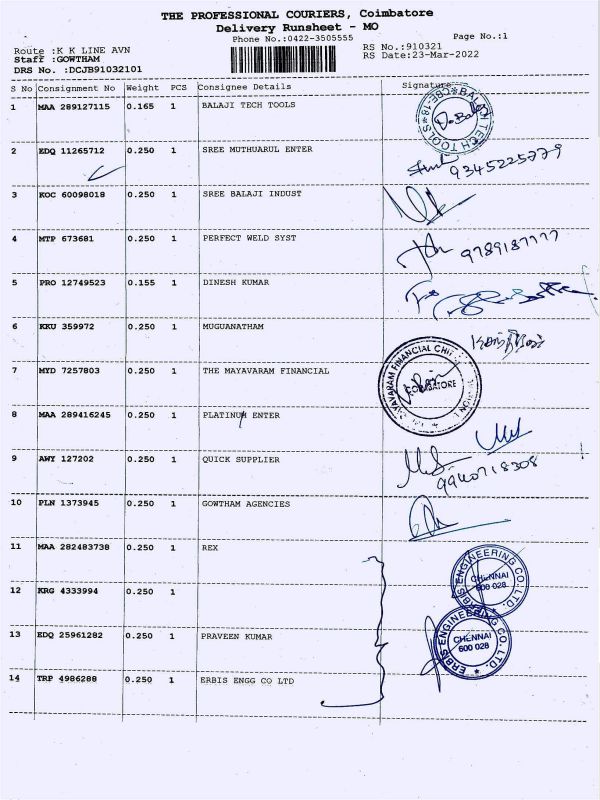 THE PROFESSIONAL COURIERS, Coimbatore
Delivery Runsheet - MO
Phone No.:0422-3505555
Page No.:1
Route :K K LINE AVN
RS No.:910321
Staff :GOWTHAM
RS Date:23-Mar-2022
DRS No. :DCJB91032101
S No Consignment No Weight PCS Consignee Details Signature
1 MAA 289127115 0.165 1 BALAJI TECH TOOLS
2 EDQ 11265712 0.250 1 SREE MUTHUARUL ENTER
9345225779
3 KOC 60098018 0.250 1 SREE BALAJI INDUST
4 MTP 673681 0.250 1 PERFECT WELD SYST
9789187777
5 PRO 12749523 0.155 1 DINESH KUMAR
6 KKU 359972 0.250 1 MUGUANATHAM
7 MYD 7257803 0.250 1 THE MAYAVARAM FINANCIAL
COIMBATORE
8 MAA 289416245 0.250 1 PLATINUM ENTER
9 AWY 127202 0.250 1 QUICK SUPPLIER
9940718308
10 PLN 1373945 0.250 1 GOWTHAM AGENCIES
11 MAA 282483738 0.250 1 REX
CHENNAI
600 028
12 KRG 4333994 0.250 1
13 EDQ 25961282 0.250 1 PRAVEEN KUMAR
ERBIS ENGINEERING CO. LTD.
CHENNAI
600 028
14 TRP 4986288 0.250 1 ERBIS ENGG CO LTD